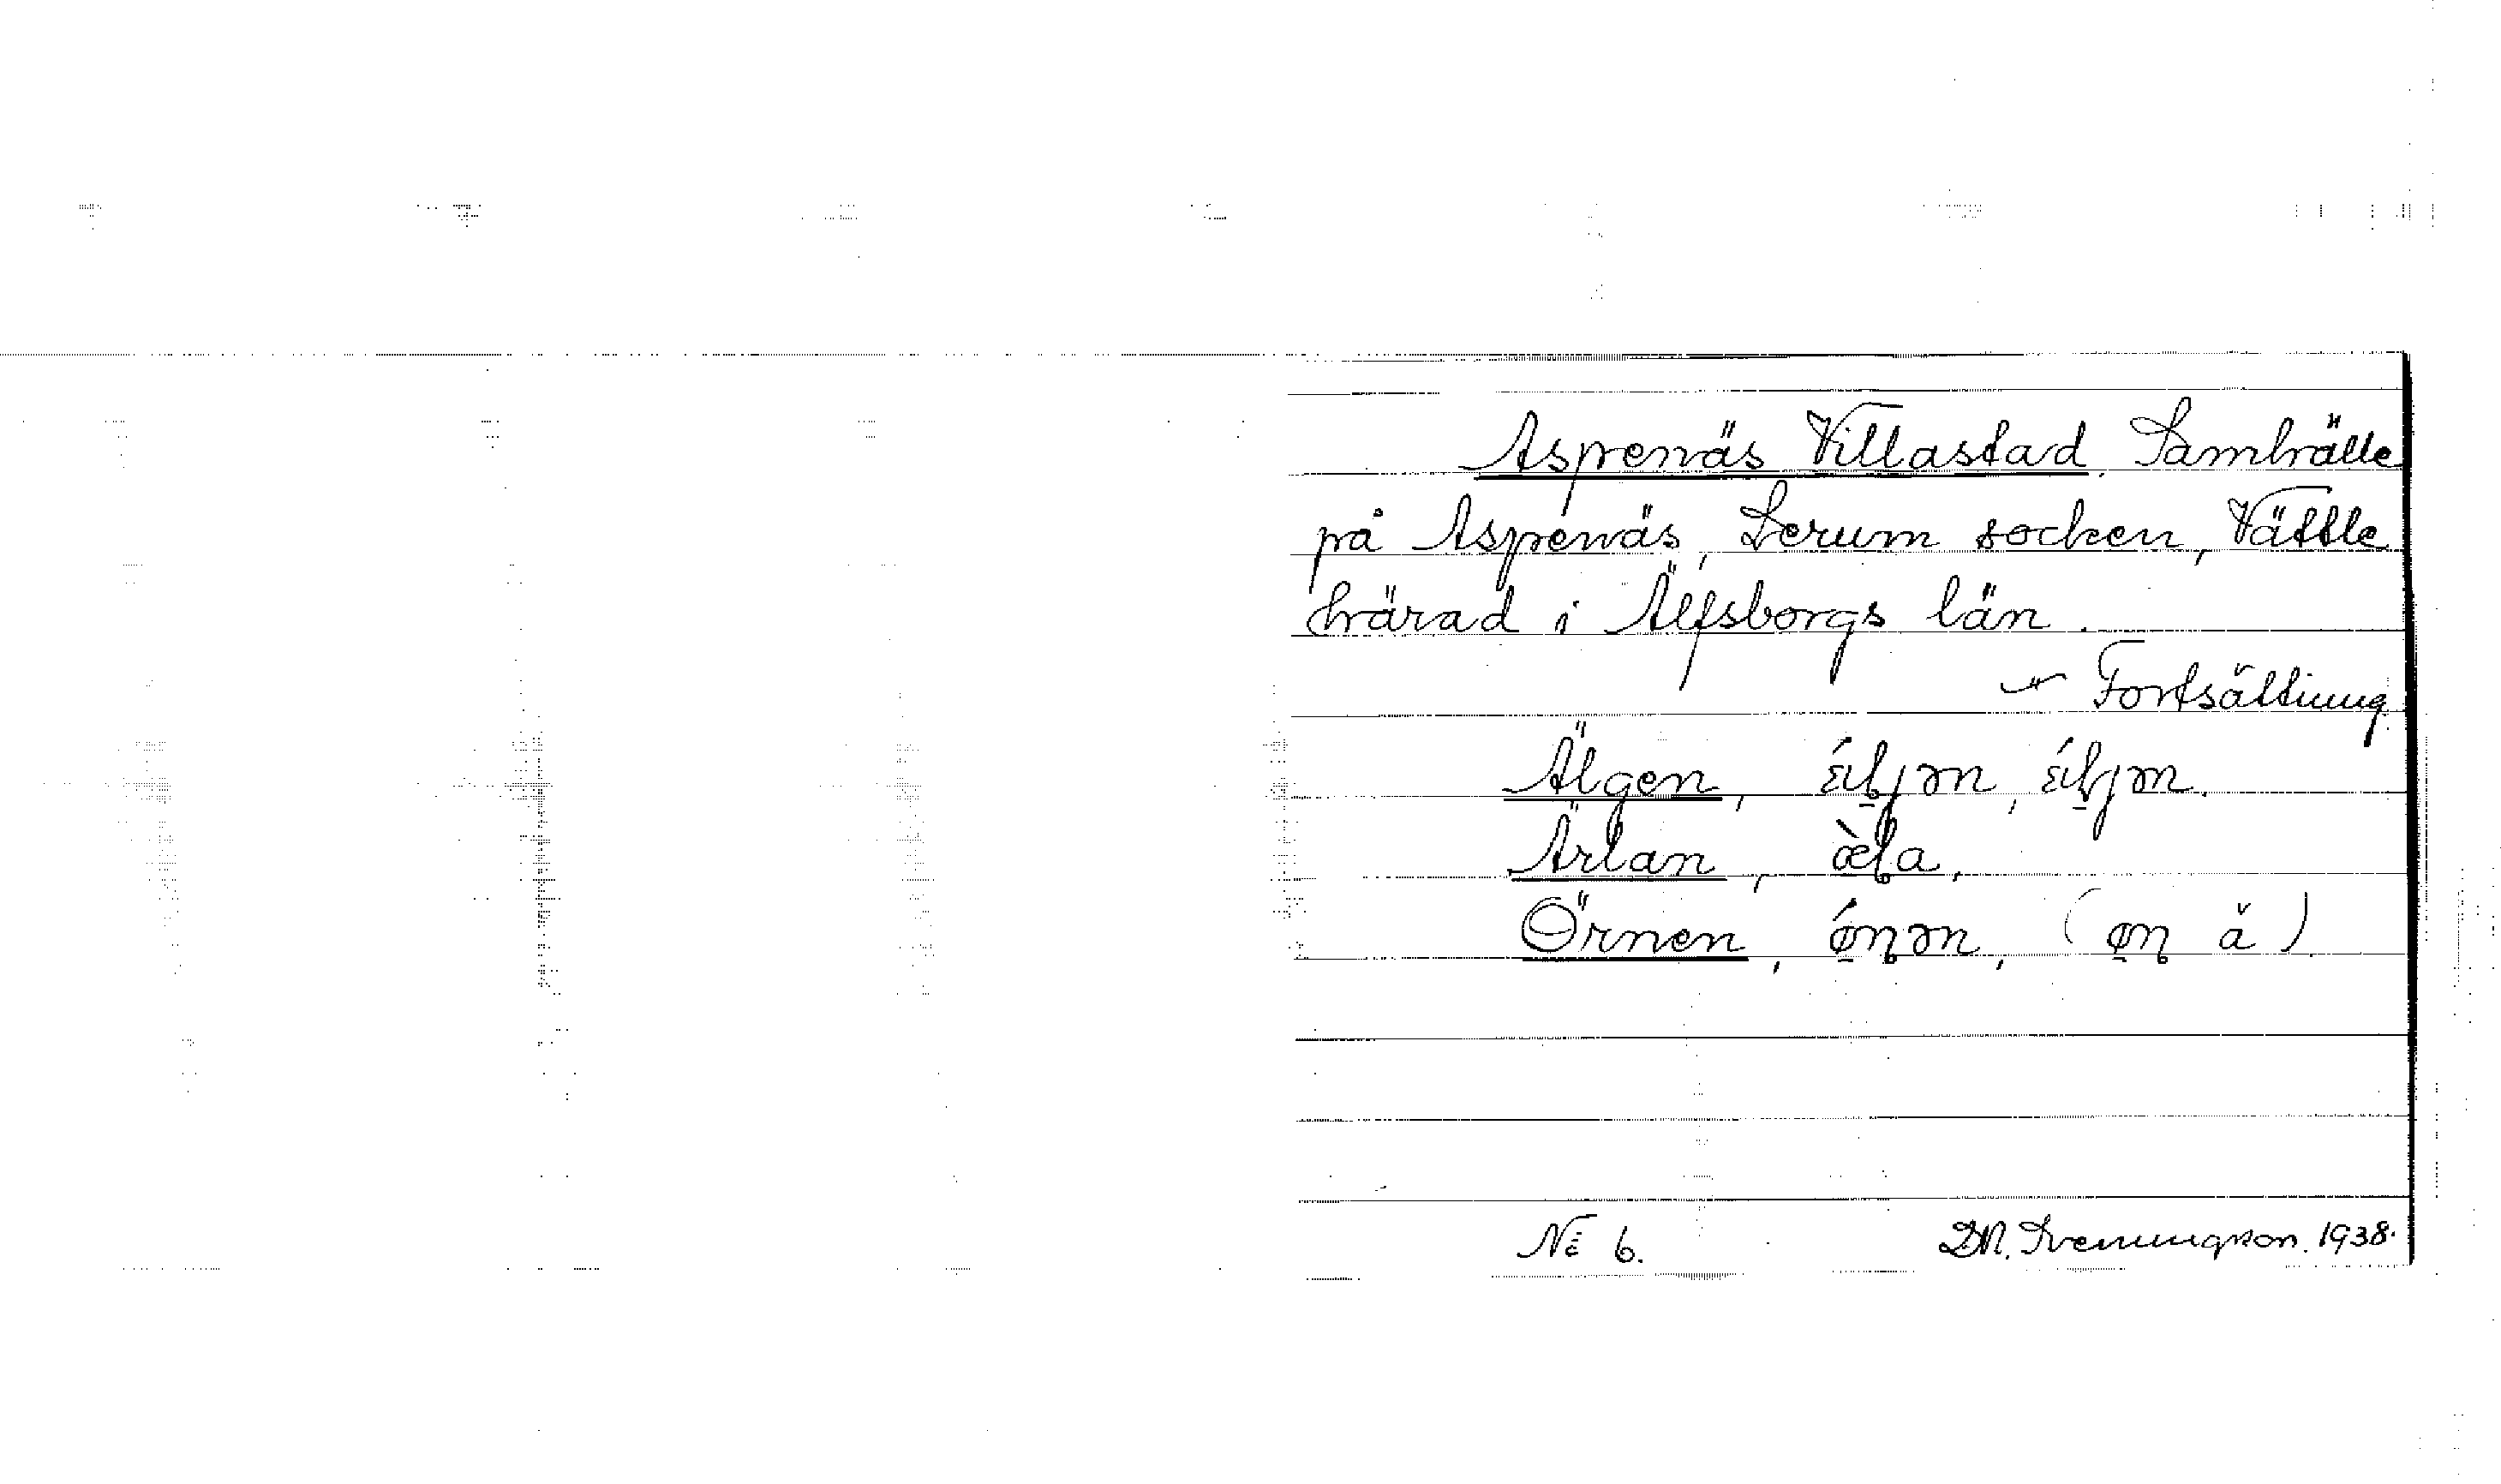 Aspenäs Villastad. Samhälle
på Aspenäs, Lerum socken, Vättle
härad i Älfsborgs län.
Fortsättning
Älgen,
Ärlan,
Örnen,
No 6. D.M. Svenungsson. 1938.